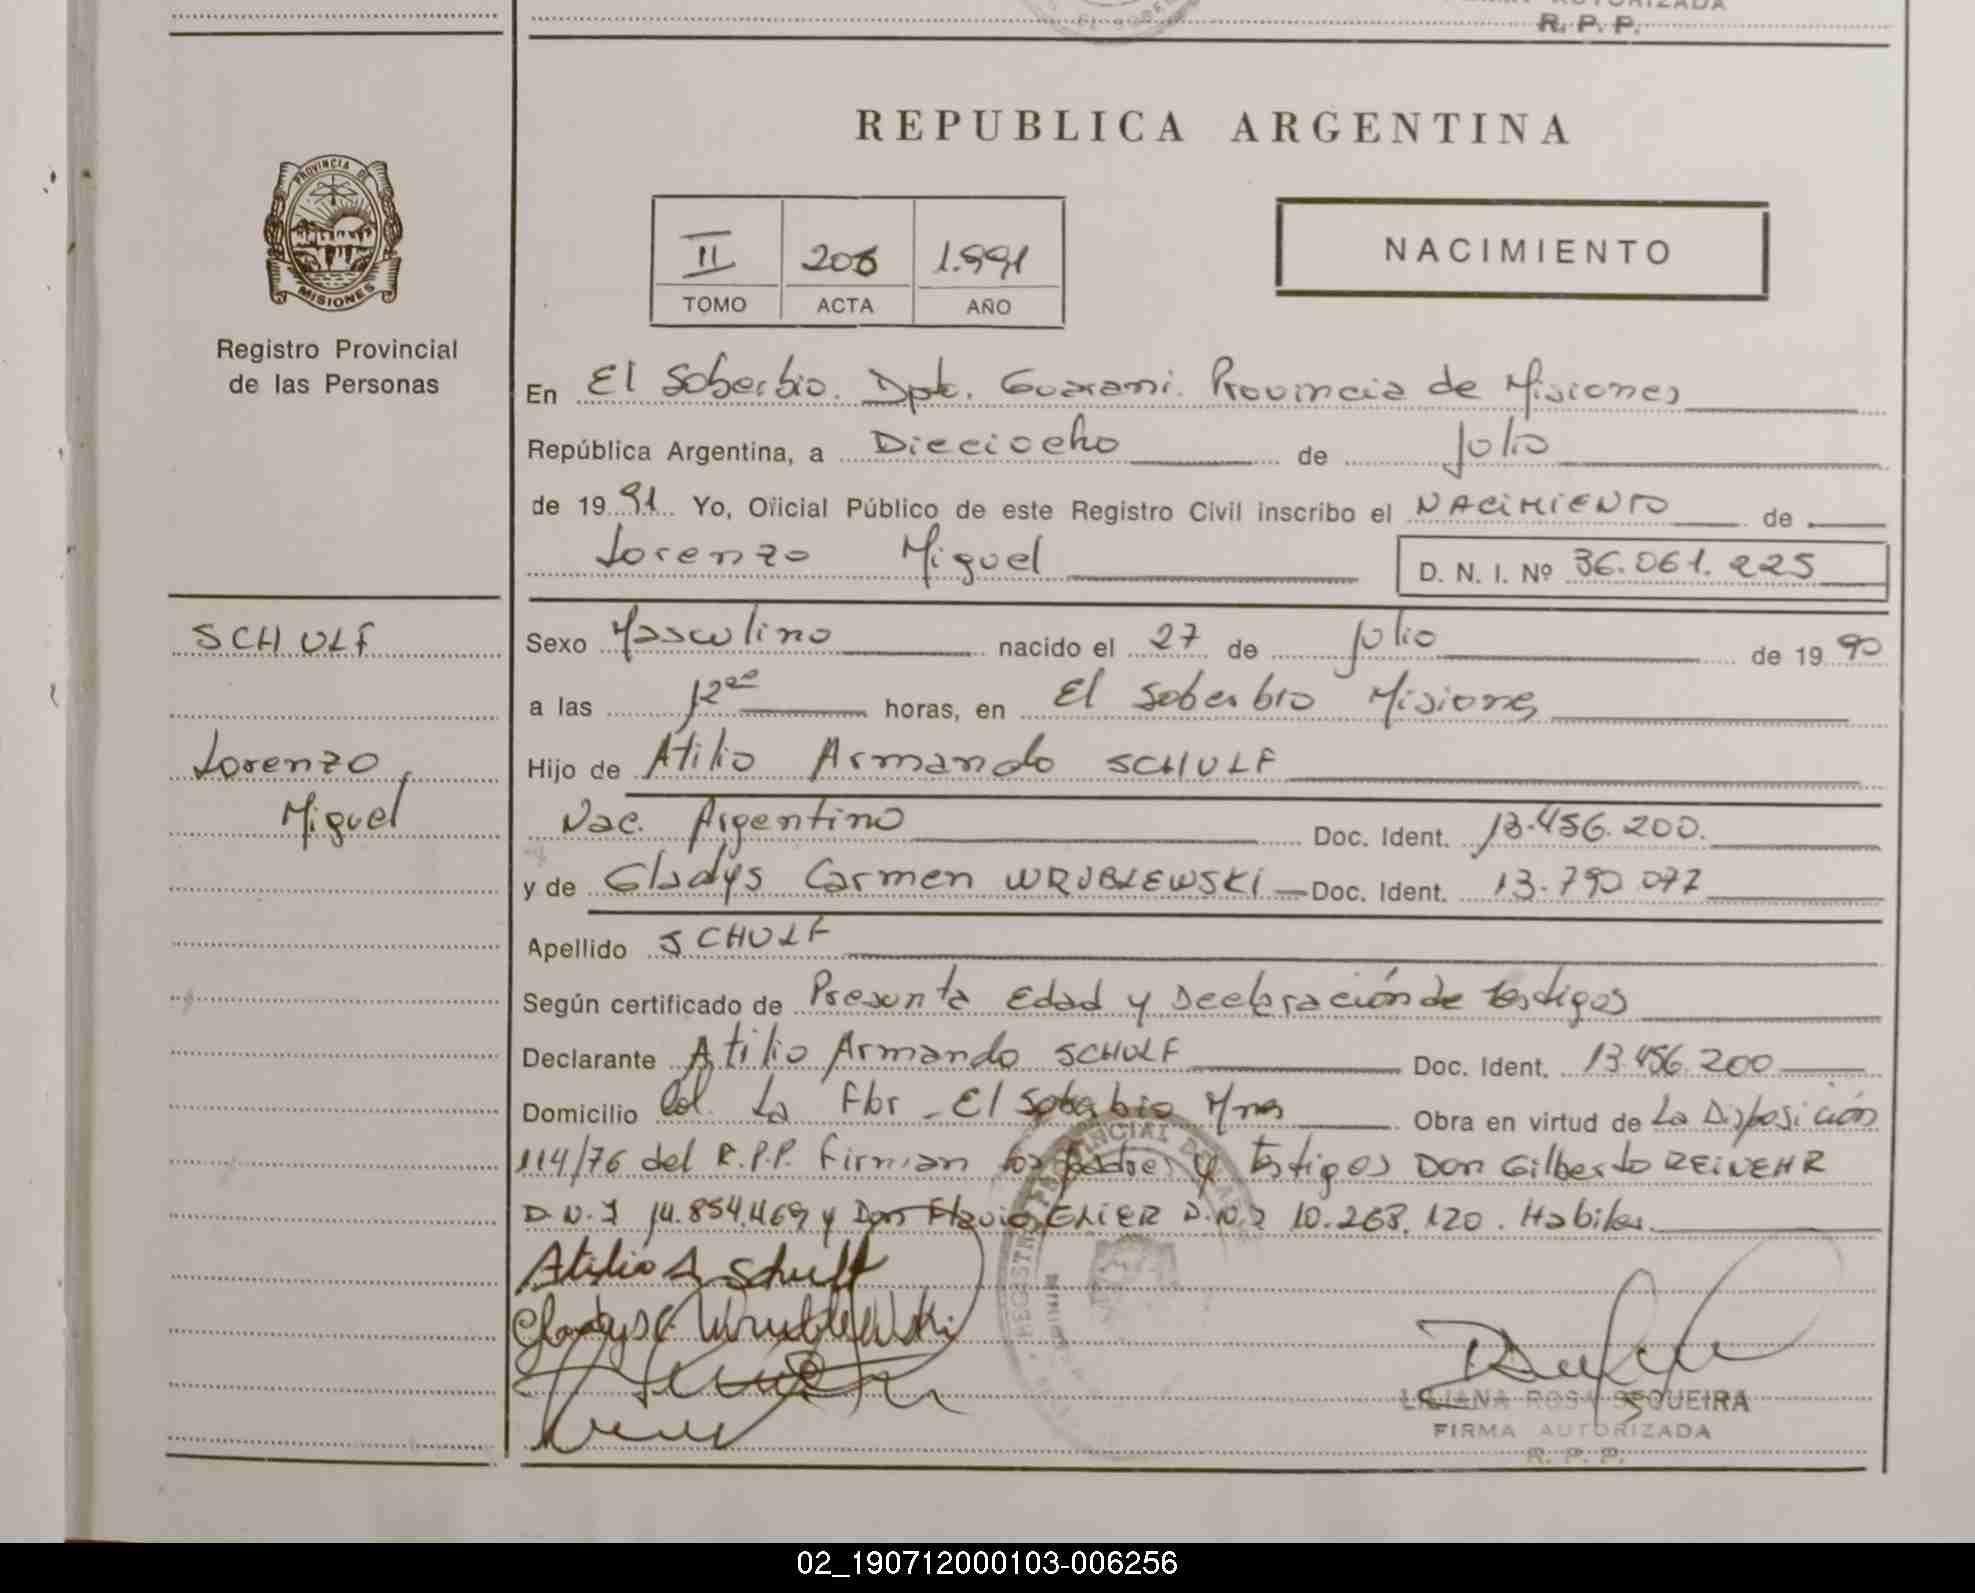 R. P. P.
REPUBLICA ARGENTINA
PROVINCIA DE
MISIONES
Registro Provincial
de las Personas
II 206 1.991
TOMO ACTA AÑO
NACIMIENTO
En El Soberbio. Dpto. Guarani. Provincia de Misiones
República Argentina, a Dieciocho de Julio
de 1991 Yo, Oficial Público de este Registro Civil inscribo el NACIMIENTO de
Lorenzo Miguel D. N. I. Nº 36.061.225
SCHULF
Lorenzo
Miguel
Sexo Masculino nacido el 27 de Julio de 1990
a las 12 horas, en El Soberbio Misiones
Hijo de Atilio Armando SCHULF
Nac. Argentino Doc. Ident. 13.456.200.
y de Gladys Carmen WRUBLEWSKI Doc. Ident. 13.790.077
Apellido SCHULF
Según certificado de Presunta Edad y Declaración de testigos
Declarante Atilio Armando SCHULF Doc. Ident. 13.456.200
Domicilio Col. La Flor - El Soberbio Mnes Obra en virtud de La Disposición
114/76 del R.P.P. Firman los padres y testigos Don Gilberto REINEHR
D.N.I 14.854.469 y Don Flavio EHIER D.N.I 10.268.120. Habiles.
Atilio A Schulf
Gladys C Wrublewski
LILIANA ROSA SEQUEIRA
FIRMA AUTORIZADA
R. P. P.
02_190712000103-006256